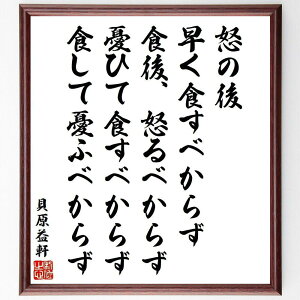 怒の後
早く食すべからず
食後、怒るべからず
憂ひて食すべからず
食して憂ふべからず
貝原益軒